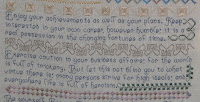 Enjoy your achievements as well as your plans. Keep
interested in your own career, however humble; it is a
real possession in the changing fortunes of time.
Exercise caution in your business affairs for the world
is full of trickery. But let this not blind you to what
virtue there is; many persons strive for high ideals; and
everywhere life is full of heroism.